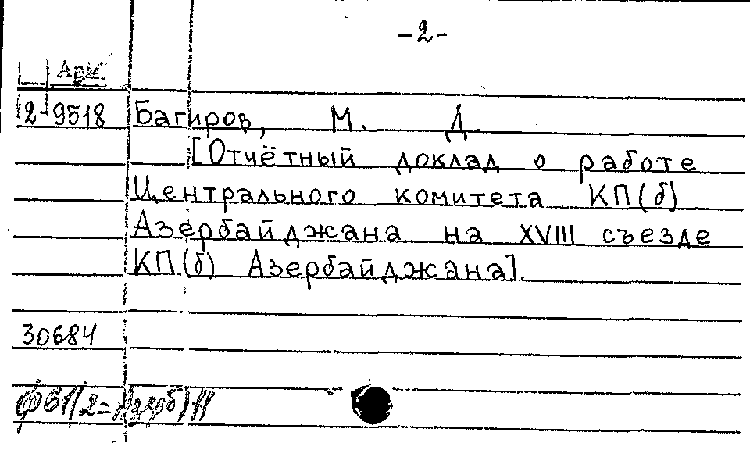 -2-
Арм.
2-9518 Багиров, М. Д.
[Отчётный доклад о работе
Центрального комитета КП(б)
Азербайджана на XVIII съезде
КП(б) Азербайджана].
30684